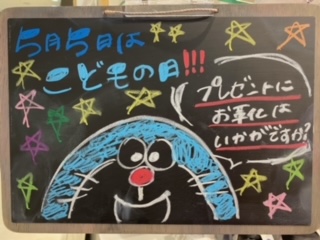 5月5日は
こどもの日!!!
プレゼントに
お菓子は
いかがですか?